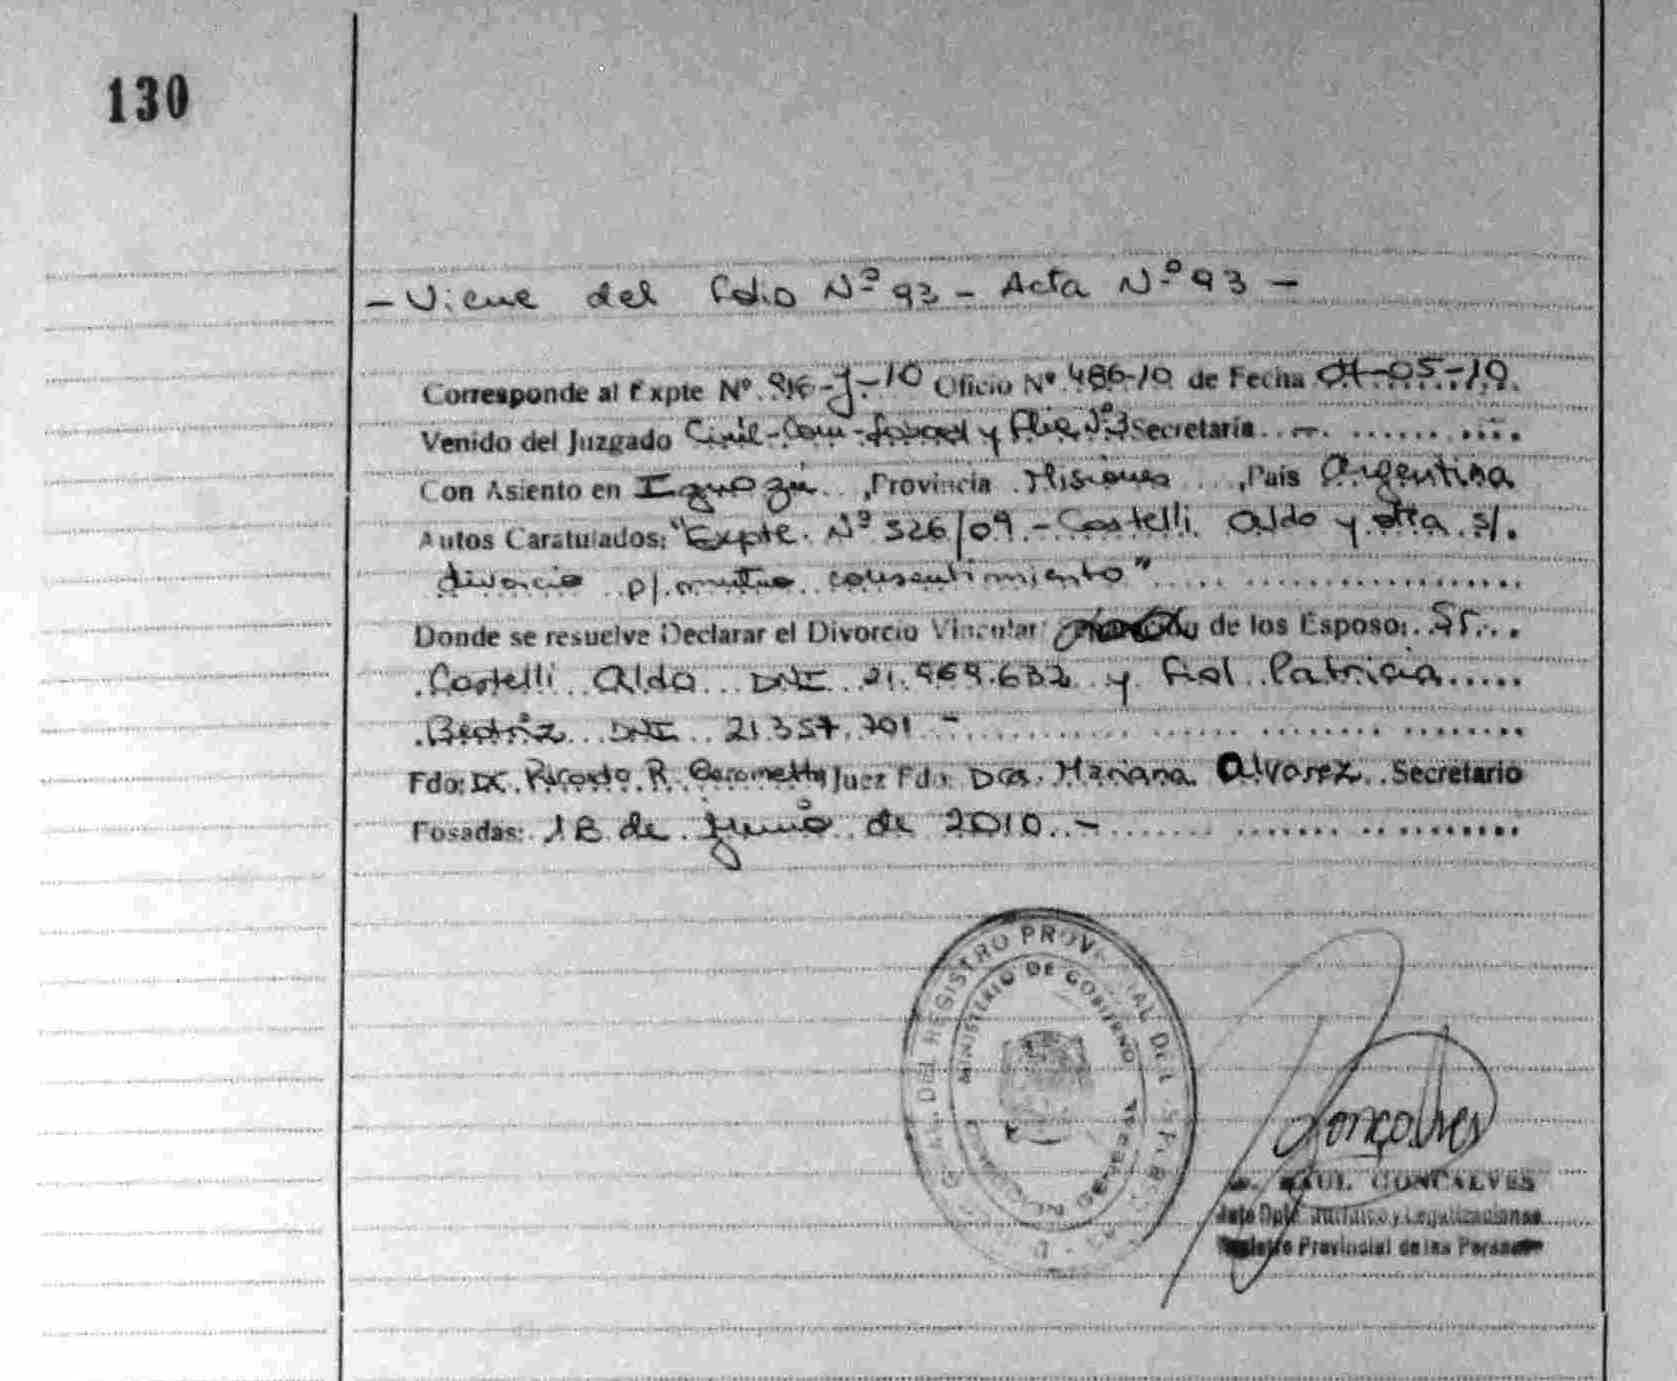 130
- Viene del folio Nº 93 - Acta Nº 93 -
Corresponde al Expte Nº 916-J-10 Oficio Nº 486-10 de Fecha 04-05-10
Venido del Juzgado Civil-Com-Laboral y Flia Nº3 Secretaría
Con Asiento en Iguazú, Provincia Misiones, País Argentina
Autos Caratulados: "Expte. Nº 326/09 - Castelli Aldo y otra s/.
divorcio p/. mutuo consentimiento"
Donde se resuelve Declarar el Divorcio Vincular de los Esposo: Sr.
Castelli Aldo DNI 21.969.632 y Fiol Patricia
Beatriz DNI 21.357.701 -
Fdo: Dr. R. Juez Fdo: Dra. Mariana Alvarez Secretario
Posadas: 18 de junio de 2010. -
REGISTRO PROVINCIAL DE
MINISTERIO DE GOBIERNO
Gonçalves
RAUL GONCALVES
Jefe Dpto. Jurídico y Legalizaciones
Registro Provincial de las Personas